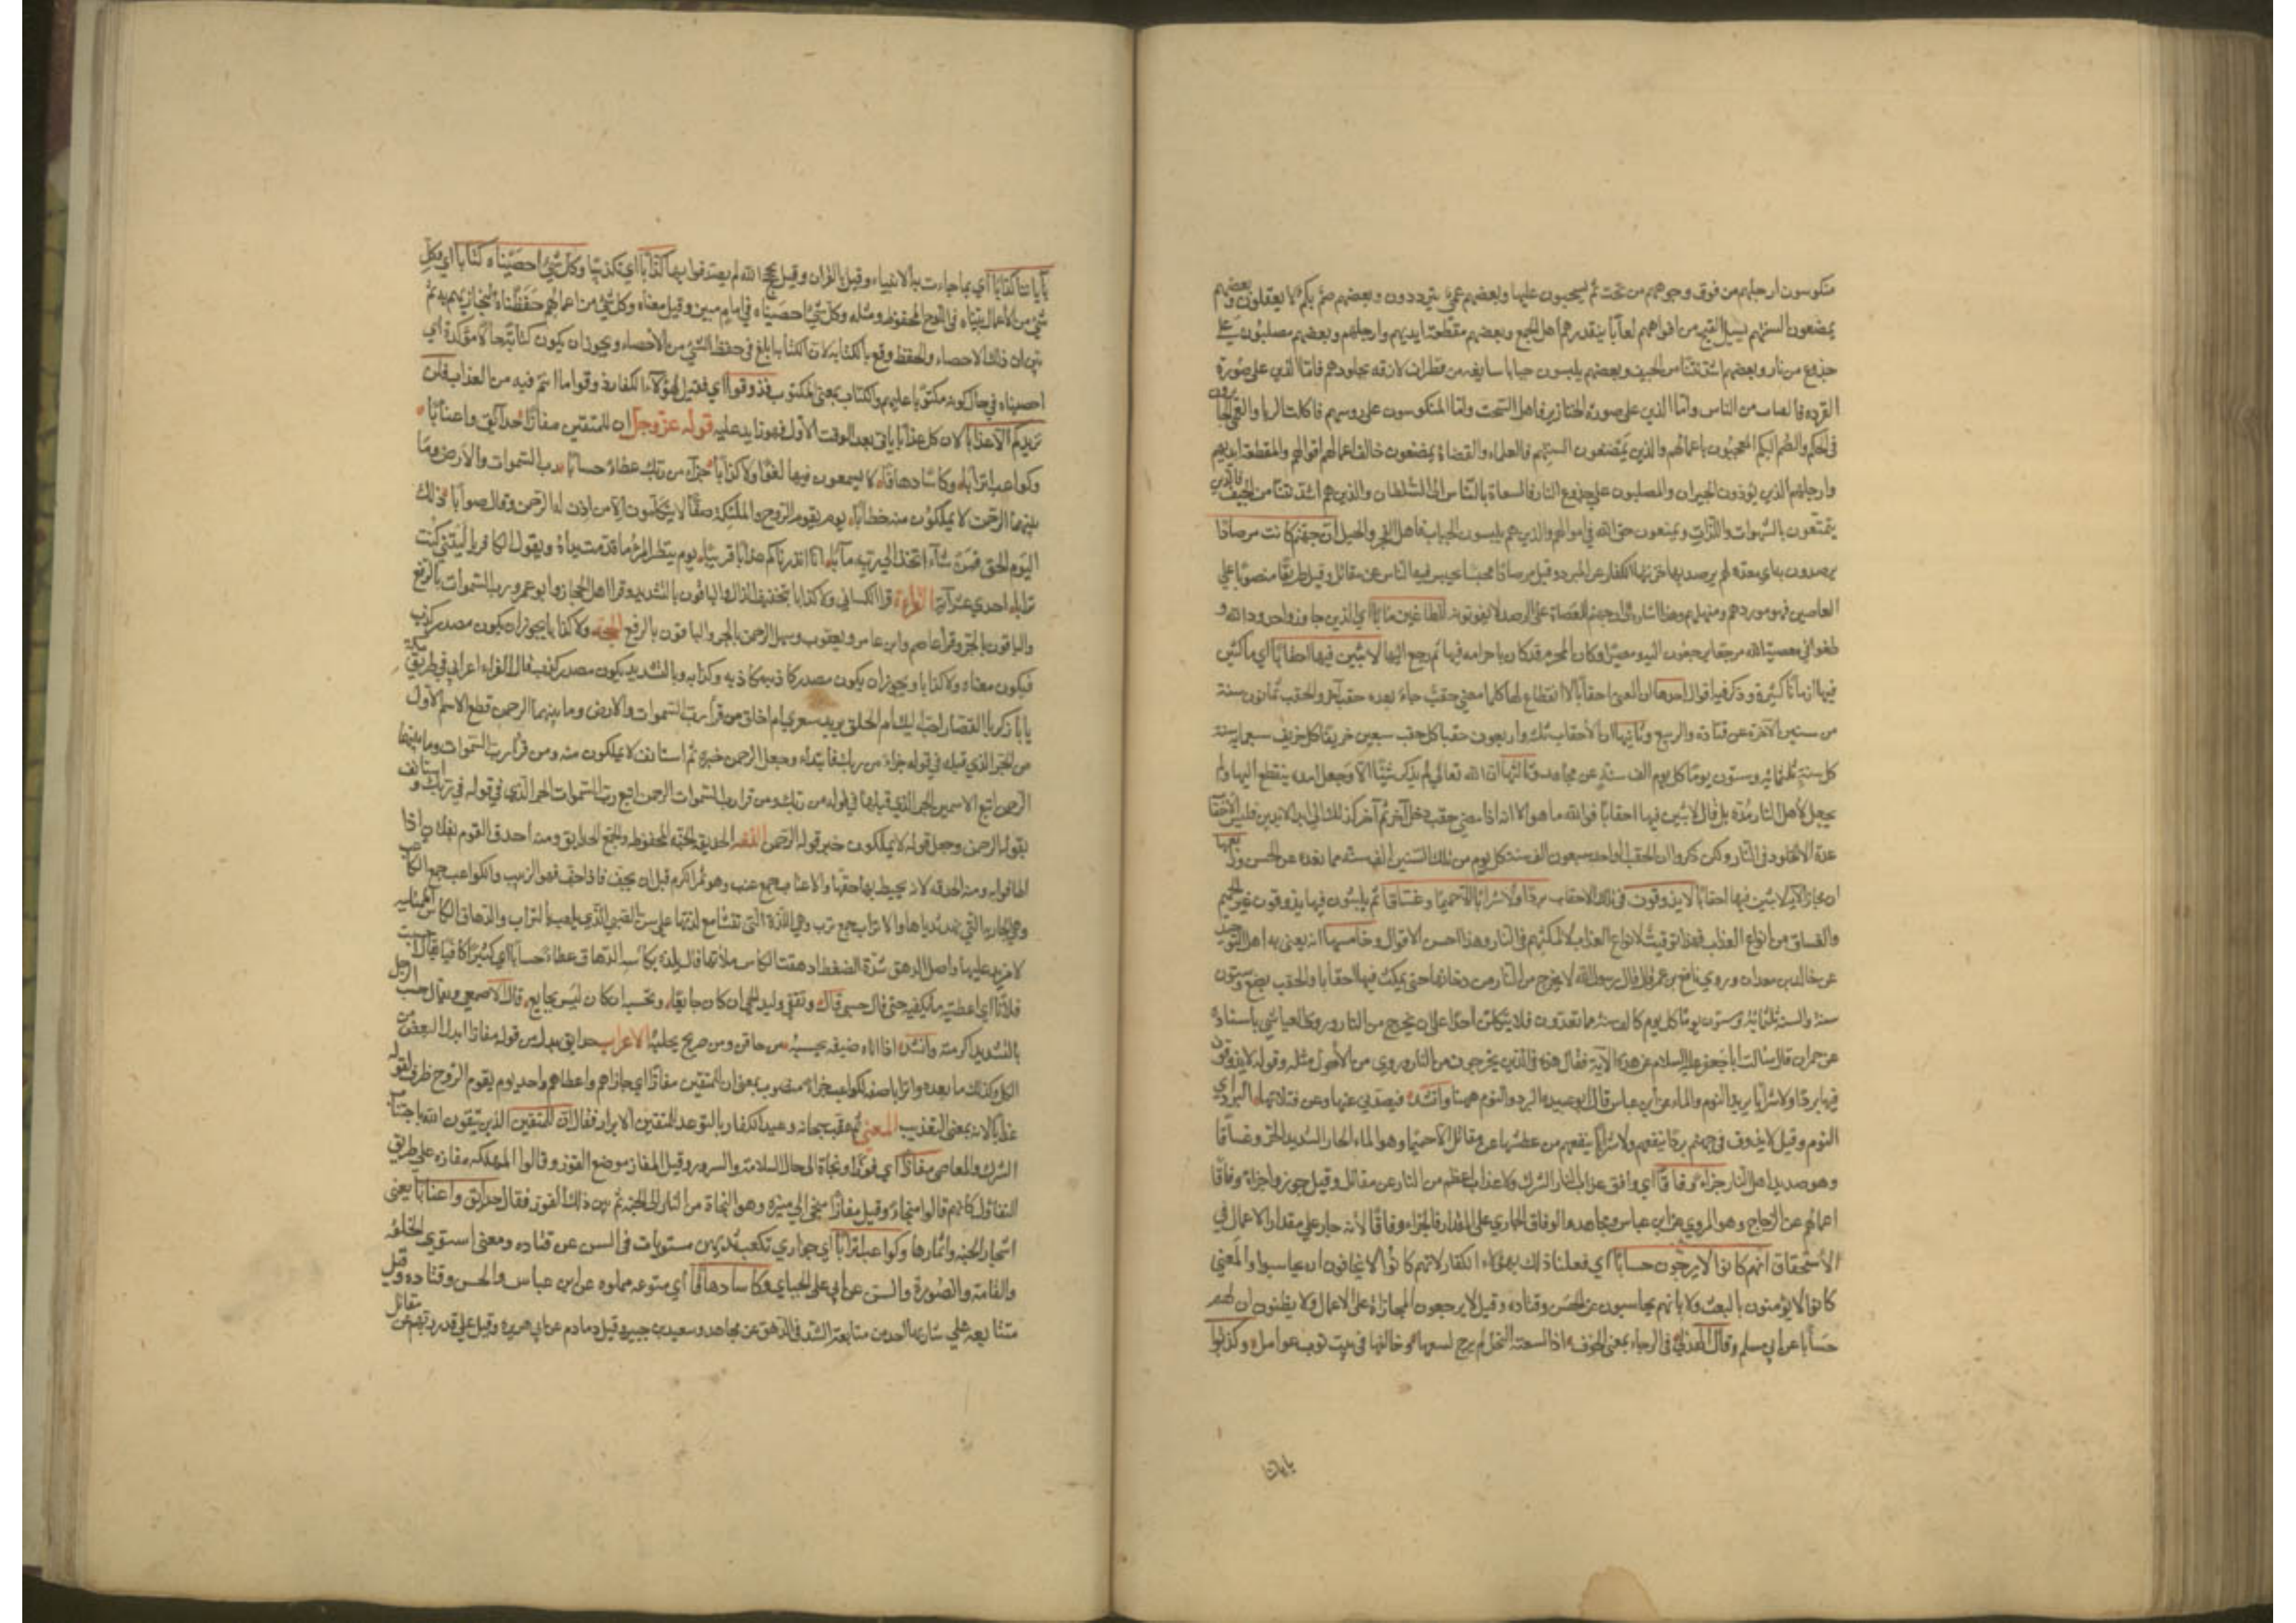 منكوسون ارجلهم من فوق وجوههم من تحت ثم يسحبون عليها وبعضهم عمي يترددون وبعضهم صم بكم لا يعقلون وبعضهم
يمضغون السنتهم يسيل القيح من افواههم لعابا يتقذرهم اهل الجمع وبعضهم مقطعة ايديهم وارجلهم وبعضهم مصلبون على
جذوع من نار وبعضهم اشد نتنا من الجيف وبعضهم يلبسون جبابا سابغه من قطران لازقه بجلودهم فاما الذين على صورة
القرده فالقتات من الناس واما الذين على صورة الخنازير فاهل السحت واما المنكوسون على روسهم فاكلت الربا والعمي الجائرون
في الحكم والصم البكم المعجبون باعمالهم والذين يمضغون السنتهم فالعلماء والقضاة يمضغون خالف اعمالهم اقوالهم والمقطعة ايديهم
وارجلهم الذين يؤذون الجيران والمصلبون على جذوع النار فالسعاة بالناس الى السلطان والذين هم اشد نتنا من الجيف فالذين
يتمتعون بالشهوات واللذات ويمنعون حق الله في اموالهم والذين هم يلبسون الجباب فاهل الفخر والخيلاء ان جهنم كانت مرصادا
يرصدون به اي معدة لهم يرصد بها خزنتها الكفار عن المبرد وقيل مرصادا محبسا يحبس فيه الناس عن مقاتل وقيل طريقا منصوبا على
العاصين فهو موردهم ومنهلهم وهذا اشارة الى ان جهنم للعصاة على الرصد لا يفوتونه للطاغين مآبا اي للذين جاوزوا حدود الله و
طغوا في معصية الله مرجعا يرجعون اليه ومصيرا وكان المجرم قد كان باجرامه فيها ثم رجع اليها لابثين فيها احقابا اي ماكثين
فيها ازمانا كثيرة وذكر فيها اقوال احدها ان المعنى احقابا لا انقطاع لها كلما مضى حقب جاء بعده حقب آخر والحقب ثمانون سنة
من سنين الآخرة عن قتادة والربيع وثانيها ان الاحقاب ثلث واربعون حقبا كل حقب سبعين خريفا كل خريف سبعمايه سنة
كل سنة ثلثمائه وستون يوما كل يوم الف سنة عن مجاهد وثالثها ان الله تعالى لم يذكر شيئا الا وجعل له مدة ينقطع اليها ولم
يجعل لاهل النار مدة بل قال لابثين فيها احقابا فوالله ما هو الا انه اذا مضى حقب دخل آخر ثم آخر كذلك الى ابد الابدين فليس للاحقاب
عدة الا الخلود في النار ولكن ذكروا ان الحقب الواحد سبعون الف سنة كل يوم من تلك السنين الف سنه مما نعده عن الحسن ورابعها
ان مجاز الآية لابثين فيها احقابا لا يذوقون في تلك الاحقاب بردا ولا شرابا الا حميما وغساقا ثم يلبثون فيها يذوقون غير الحميم
والغساق من انواع العذاب فهذا توقيت لانواع العذاب لا لمكثهم في النار وهذا احسن الاقوال وخامسها انه يعنى به اهل التوحيد
عن خالد بن معدان وروى نافع عن ابن عمر قال قال رسول الله لا يخرج من النار من دخلها حتى يمكث فيها احقابا والحقب بضع وستون
سنة والسنة ثلثمائة وستون يوما كل يوم كالف سنة مما تعدون فلا يتكلن احد على ان يخرج من النار وروى العياشي باسناده
عن حمران قال سالت ابا جعفر عليه السلام عن هذه الآية فقال هذه في الذين يخرجون من النار وروى عن الأحول مثله وقوله لا يذوقون
فيها بردا ولا شرابا يريد النوم والماء عن ابن عباس قال ابو عبيدة البرد النوم ههنا وانشد فيصدني عنها وعن قبلاتها البرد اي
النوم وقيل لا يذوقون في جهنم بردا ينفعهم ولا شرابا ينفعهم من عطشها عن مقاتل الا حميما وهو الماء الحار الشديد الحر وغساقا
وهو صديد اهل النار جزاء وفاقا اي وافق عذاب النار الشرك ولا عذاب اعظم من النار عن مقاتل وقيل جوزوا جزاء وفاقا
اعمالهم عن الزجاج وهو المروي عن ابن عباس ومجاهد والوفاق الجاري على المقدار فالجزاء وفاقا لأنه جار على مقدار الاعمال في
الاستحقاق انهم كانوا لا يرجون حسابا اي فعلنا ذلك بهؤلاء الكفار لانهم كانوا لا يخافون ان يحاسبوا والمعنى
كانوا لا يؤمنون بالبعث ولا بانهم يحاسبون عن الحسن وقتاده وقيل لا يرجون المجازاة على الاعمال ولا يظنون ان لهم
حسابا عن ابي مسلم وقال الهذلي في الرجاء بمعنى الخوف اذا لسعته النحل لم يرج لسعها وخالفها في بيت نوب عوامل وكذبوا
بآياتنا
بآياتنا كذابا اي بما جاءت به الانبياء وقيل بالقران وقيل بحجج الله لم يصدقوا بها كذابا اي تكذيبا وكل شئ احصيناه كتابا اي وكل
شئ من الاعمال بيناه في اللوح المحفوظ ومثله وكل شئ احصيناه في امام مبين وقيل معناه وكل شئ من اعمالهم حفظناه لنجازيهم به ثم
بين ان ذلك الاحصاء والحفظ وقع بالكتابة لان الكتابة ابلغ في حفظ الشئ من الاحصاء ويجوز ان يكون كتابا حالا مؤكدة اي
احصيناه في حال كونه مكتوبا عليهم والكتاب بمعنى المكتوب فذوقوا اي فقيل لهؤلاء الكفار ذوقوا ما انتم فيه من العذاب فلن
نزيدكم الا عذابا لان كل عذاب ياتي بعد الوقت الاول فهو زايد عليه قوله عز وجل ان للمتقين مفازا حدائق واعنابا
وكواعب اترابا وكاسا دهاقا لا يسمعون فيها لغوا ولا كذابا جزاء من ربك عطاء حسابا رب السموات والارض وما
بينهما الرحمن لا يملكون منه خطابا يوم يقوم الروح والملئكة صفا لا يتكلمون الا من اذن له الرحمن وقال صوابا ذلك
اليوم الحق فمن شآء اتخذ الى ربه مآبا انا انذرناكم عذابا قريبا يوم ينظر المرء ما قدمت يداه ويقول الكافر يا ليتني كنت
ترابا احدى عشر آية القراءة قرا الكسائي ولا كذابا بتخفيف الذال والباقون بالتشديد وقرا اهل الحجاز وابو عمرو رب السموات بالرفع
والباقون بالجر وقرأ عاصم وابن عامر ويعقوب وسهل الرحمن بالجر والباقون بالرفع الحجة ولا كذابا يجوز ان يكون مصدر كذب
فيكون معناه ولا كذابا ويجوز ان يكون مصدر كاذبه مكاذبه وكذابا وبالتشديد يكون مصدر كذب قال الفراء اعرابي في طريق مكة
يا با زكريا القصار احب اليك ام الحلق يريد من قرأ رب السموات والارض وما بينهما الرحمن قطع الاسم الاول
من الجر الذي قبله في قوله جزاء من ربك فابتداه وجعل الرحمن خبره ثم استانف لا يملكون منه ومن قرأ رب السموات وما بينهما
الرحمن اتبع الاسمين الجر الذي قبلهما في قوله من ربك ومن قرا رب السموات الرحمن اتبع رب السموات الجر الذي في قوله من ربك واستانف
بقوله الرحمن وجعل قوله لا يملكون خبر قوله الرحمن اللغة الحديقة الجنة المحوطة والجمع الحدايق ومنه احدق القوم بفلان اذا
اطافوا به ومنه الحدقه لانه يحيط بها جفنها والاعناب جمع عنب وهو ثمر الكرم قبل ان يجف فاذا جف فهو الزبيب والكواعب جمع الكاعب
وهي الجارية التي نهد ثدياها والاتراب جمع ترب وهي اللدة التي تنشأ مع لدتها على سن الصبي الذي يلعب بالتراب والدهاق الكأس الممتلية
لا مزيد عليها واصل الدهق شدة الضغط ادهقت الكاس ملأتها قال يلذه بكأسه الدهاق عطاء حسابا اي كثيرا كافيا يقال احسبت
فلانا اي اعطيته ما يكفيه حتى قال حسبي قال ونقفي وليد الحي ان كان جايعا ونحسبه ان كان ليس بجايع قال الاصمعي ويقال حسبت الرجل
بالتشديد اكرمته وانشد اذا اتاه ضيفه يحسبه من حاقن ومن صريح يحلبه الاعراب حدايق بدل من قوله مفازا بدل البعض من
الكل وكذلك ما بعده واترابا صفة لكواعب جزاء منصوب بمعنى ان للمتقين مفازا اي جازاهم واعطاهم واحد يوم يقوم الروح ظرف لقوله
عذابا لانه بمعنى التعذيب المعنى ثم عقب سبحانه وعيد الكفار بالتوعد للمتقين الابرار فقال ان للمتقين الذين يتقون الله باجتناب
الشرك والمعاصي مفازا اي فوزا ونجاة الى حال السلامة والسرور وقيل المفاز موضع الفوز وقالوا المهلكه مفازه على طريق
التفاؤل كانهم قالوا منجاة وقيل مفازا منجى الى منتزه وهو النجاة من النار الى الجنه ثم بين ذلك الفوز فقال حدائق واعنابا يعني
اشجار الجنه واثمارها وكواعب اترابا اي جواري تكعب ثديهن مستويات في السن عن قتاده ومعنى استوى الخلقه
والقامة والصورة والسن عن ابي علي الجبائي وكاسا دهاقا اي مترعه مملوه عن ابن عباس والحسن وقتاده وقيل
متتابعه على شاربها اخذ من متابعة الشد في الدهق عن مجاهد وسعيد بن جبير وقيل دمادم عن ابي هريره وقيل على قدر ريهم عن مقاتل